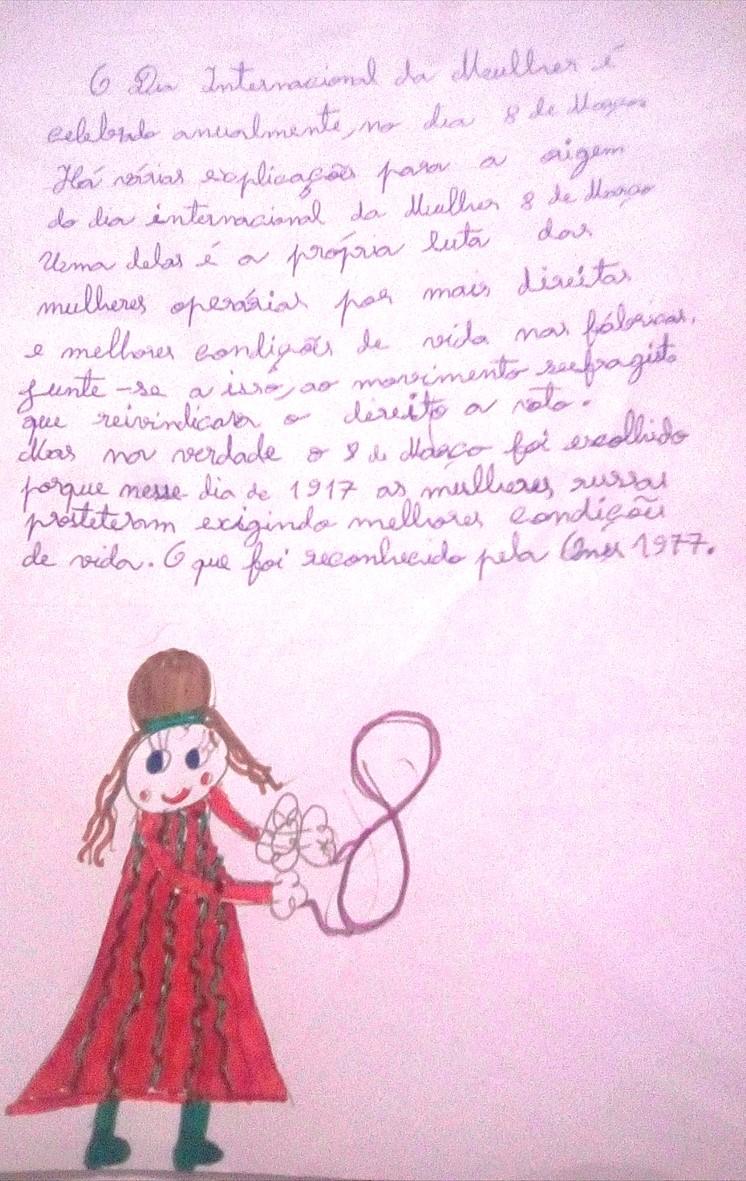 O Dia Internacional da Meulher é
celebrado anualmente, no dia 8 de Março
Há várias explicações para a origem
do dia internacional da Mulher 8 de Março
Uma delas é a própria luta das
mulheres operárias por mais direitas
e melhores condições de vida nas fábricas.
Junte-se a isso, ao movimento sufragista
que reivindicava o direito a voto.
Mas na verdade o 8 de Março foi escolhido
porque nesse dia de 1917 as mulheres russas
protesteram exigindo melhores condições
de vida. O que foi reconhecido pela Onu 1977.
8